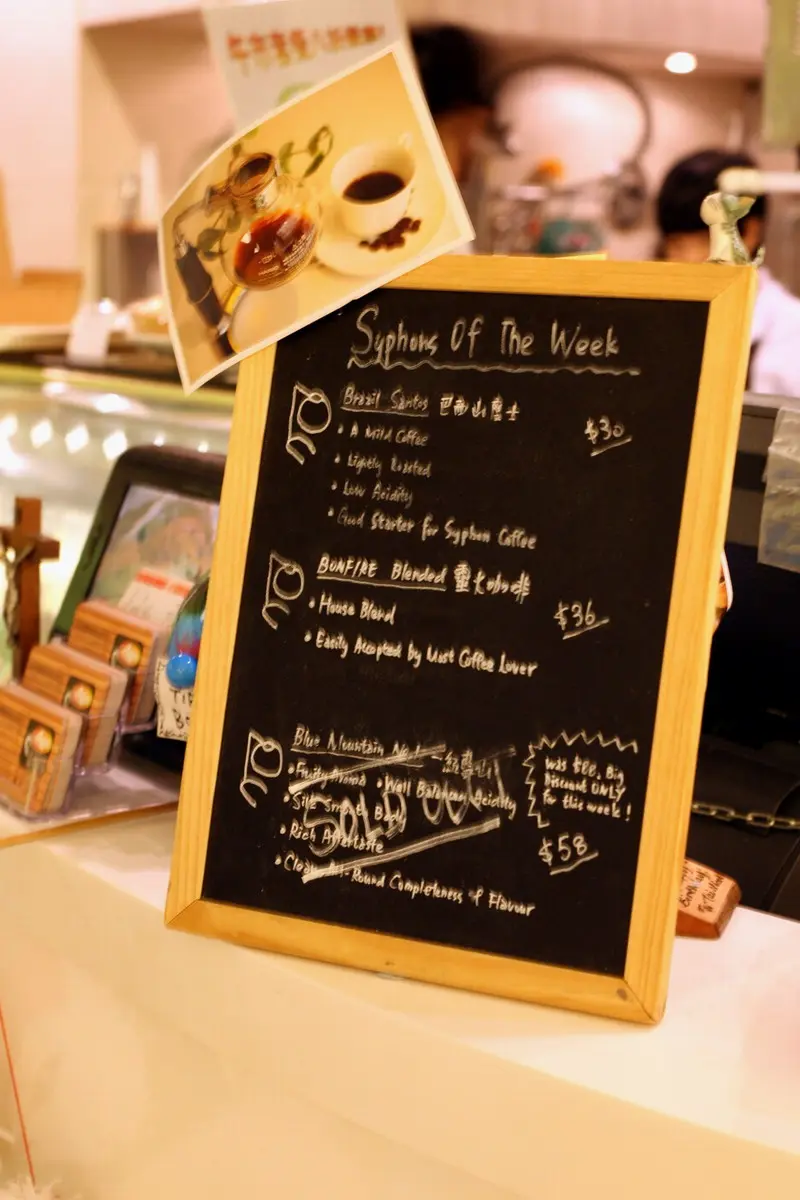 Syphons Of The Week
Brazil Santos 巴西山度士
$30
• A Mild Coffee
• Lightly Roasted
• Low Acidity
• Good Starter for Syphon Coffee
BONFIRE Blended 靈火咖啡
$36
• House Blend
• Easily Accepted by Most Coffee Lover
Blue Mountain No.1 一級藍山
• Fruity Aroma • Well Balance Acidity
• Silk Smooth Body
• Rich Aftertaste
• Clean All-Round Completeness of Flavour
SOLD OUT
was $80, Big
Discount ONLY
for this week!
$58